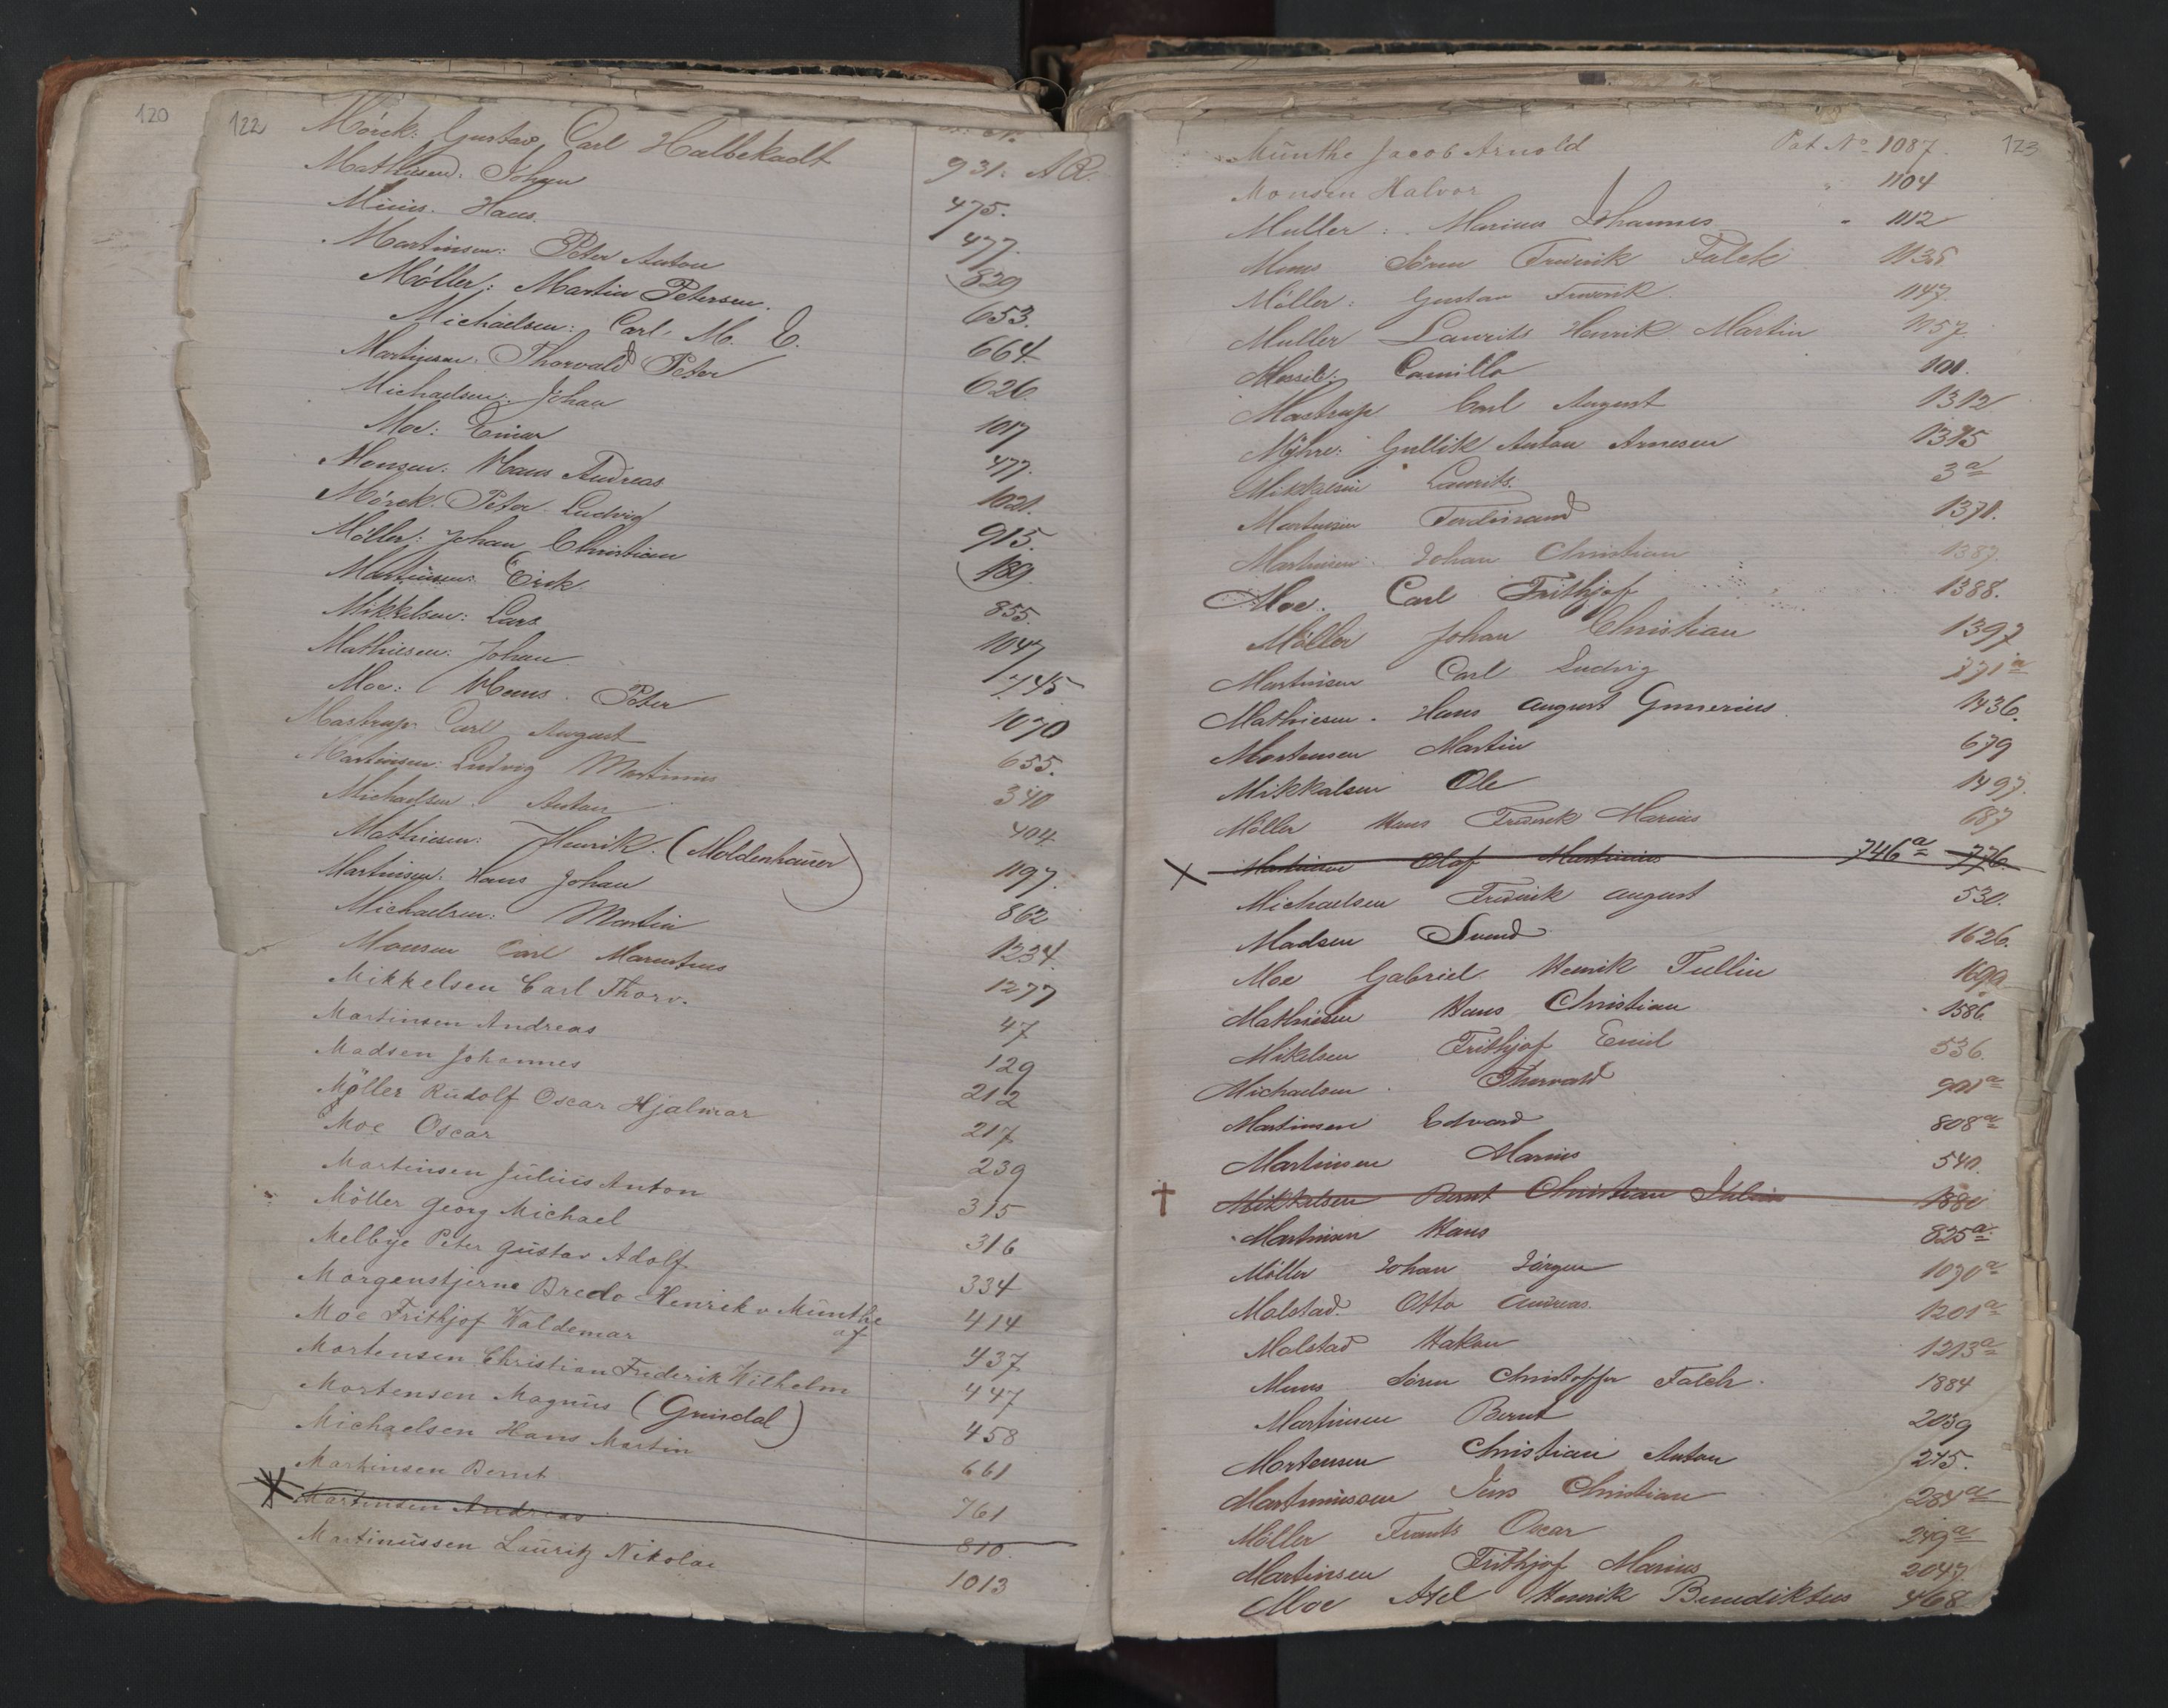 120
122
Mörck: Gustav Carl Halbekadt 931. AR.
Mathiesen: Johan 475.
Hans. 477.
Martinsen: Peter Anton 829
Möller: Martin Petersen. 653.
Michaelsen: Carl. M. E. 664.
Martinsen: Thorvald Peter 626.
Michaelsen: Johan 1017
Moe: Einar 477.
Monsen: Hans Andreas 1021.
Mörck: Peter Ludvig 915.
Möller: Johan Christian 189.
Martinsen: Erik. 855.
Mikkelsen: Lars 1047
Mathiesen: Johan 745
Moe: Hans. Peter 1070
Mastrup: Carl August 655.
Martinsen: Ludvig Martinius 340
Michaelsen. Anton 404
Mathiesen: Henrik. (Moldenhauer) 1197.
Martinsen: Hans Johan 862
Michaelsen: Martin 1234.
Monsen Carl 1277
Mikkelsen Carl Thorv. 47
Martinsen Andreas 129
Madsen Johannes 212
Möller Rudolf Oscar Hjalmar 217
Moe Oscar 239
Martinsen Julius Anton 315
Möller Georg Michael 316
Melbye Peter Gustav Adolf 334
Morgenstjerne Bredo Henrik v Münthe af 414
Moe Frithjof Waldemar 437
Mortensen Christian Friderik Wilhelm 447
Mortensen Magnus (Grindal) 458
Michaelsen Hans Martin 661
Martinsen Bernt 761
Martinsen Andreas 810.
Martinussen Lauritz Nikolai 1013
123
Münthe Jacob Arnold Pat No 1087.
Monsen Halvor " 1104
Muller: Marius Johannes " 1112
Mons Sören Fredrik Falck 1136
Möller: Gustav Fredrik 1147.
Muller Laurits Henrik Martin 1157.
Camilla 101.
Mastrup Carl August 1312
Myhre: Gullik Anton Arnesen 1345
Mikkalsen Laurits. 3a
Martinsen Ferdinand 1371.
Martinsen: Johan Christian 1387.
Moe. Carl Frithjof 1388.
Möller Johan Christian 1397
Martinsen Carl Ludvig 771a
Mathiesen. Hans August Gunerius. 1436.
Mortensen Martin 679
Mikkalsen Ole 1497.
Möller Hans Fredrik Marius 687
Martinsen Olaf Martinius 746a 776.
Michaelsen Fredrik August 530.
Madsen Svend 1626.
Moe Gabriel Henrik Tullin 1699
Mathiesen Hans Christian 1586.
Mikelsen Frithjof Emil 536.
Michaelsen. Thorvald 901a
Martinsen Edvard 808a
Martinsen Marius 540.
Mikkelsen Bernt Christian Julius 1881
Martinsen Hans 825a
Möller Johan Jörgen 1090a
Molstad. Otto Andreas. 1201a
Molstad Hakon 1213a
Mons Sören Christoffer Falch. 1884
Martinsen Bernt 2039
Mortensen Christian Anton 245.
Martiniussen Jens Christian 284a
Möller Frants Oscar 249a
Martinsen Frithjof Marius 2047.
Moe Axel Henrik Benediktus 468